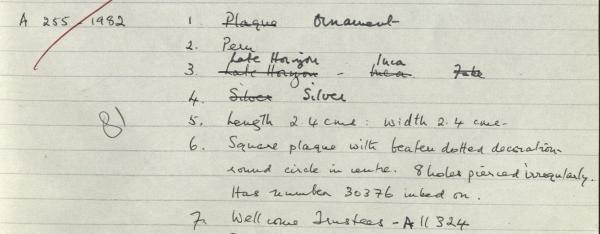 A 255-1982 1. Plaque Ornament
2. Peru
Late Horizon Inca
3. Late Horizon - Inca
4. Silver Silver
81
5. Length 2.4 cms: width 2.4 cms.
6. Square plaque with beaten dotted decoration
round circle in centre. 8 holes pierced irregularly.
Has number 30376 inked on.
7. Wellcome Trustees - A11324